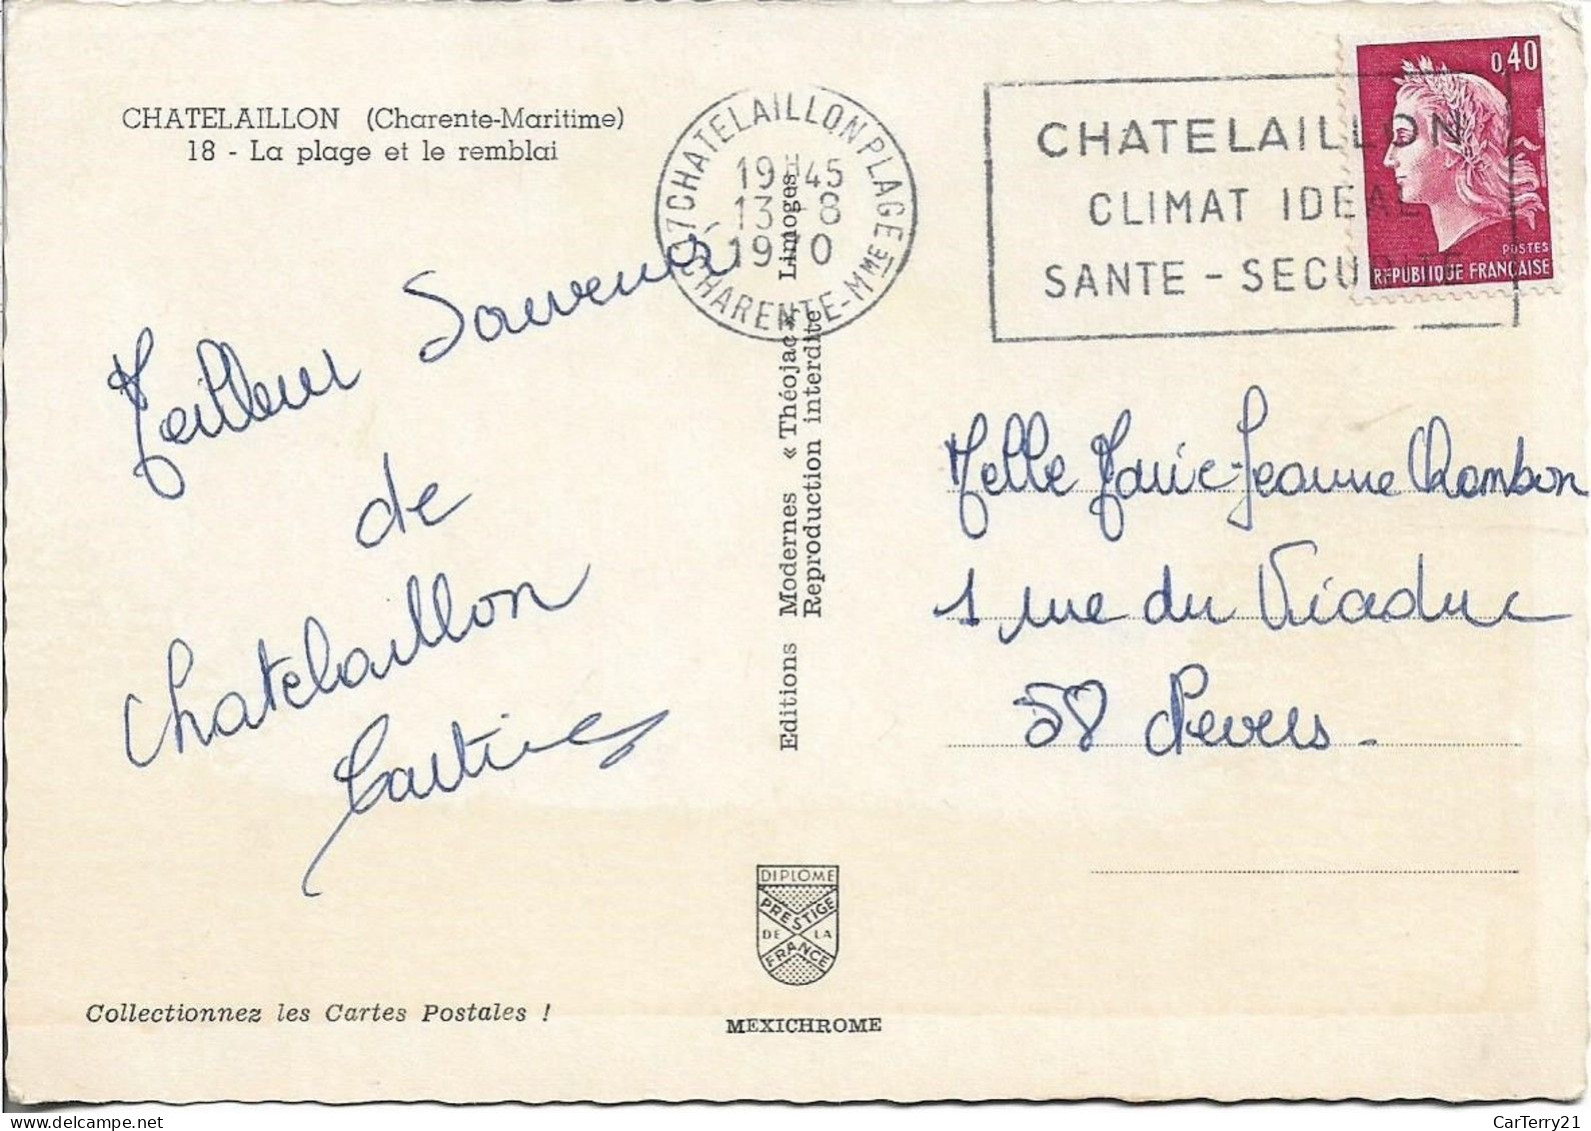 CHATELAILLON (Charente-Maritime)
18 - La plage et le remblai
17 CHATELAILLON PLAGE
CHARENTE-MME
19H45
13-8
1970
CHATELAILLON
CLIMAT IDEAL
SANTE - SECURITE
0,40
POSTES
REPUBLIQUE FRANÇAISE
Meilleur Souvenir
de
Chatelaillon
Editions Modernes « Théojac » Limoges
Reproduction interdite
Melle Marie-Jeanne Chambon
1 rue du Viaduc
58 Nevers.
DIPLOME
PRESTIGE
DE LA
FRANCE
Collectionnez les Cartes Postales !
MEXICHROME
CarTerry21